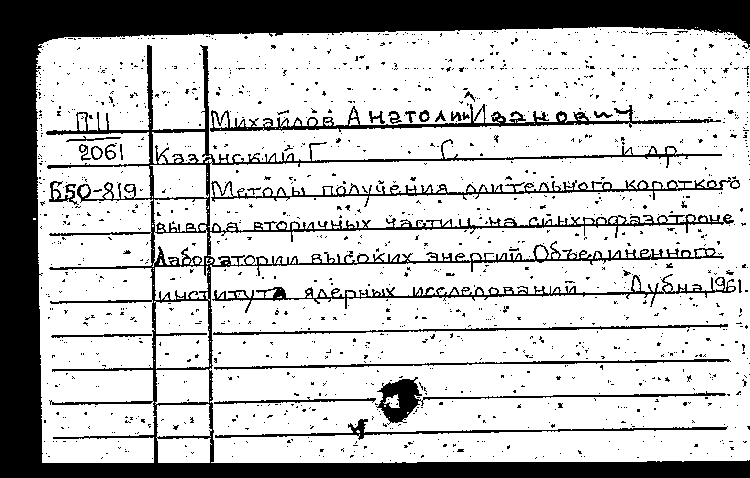 П11
Михайлов, Анатолий Иванович
2061 Казанский, Г. С. и др.
Б50-819 Методы получения длительного короткого
вывода вторичных частиц на синхрофазотроне
Лаборатории высоких энергий Объединенного
института ядерных исследований. Дубна, 1961.